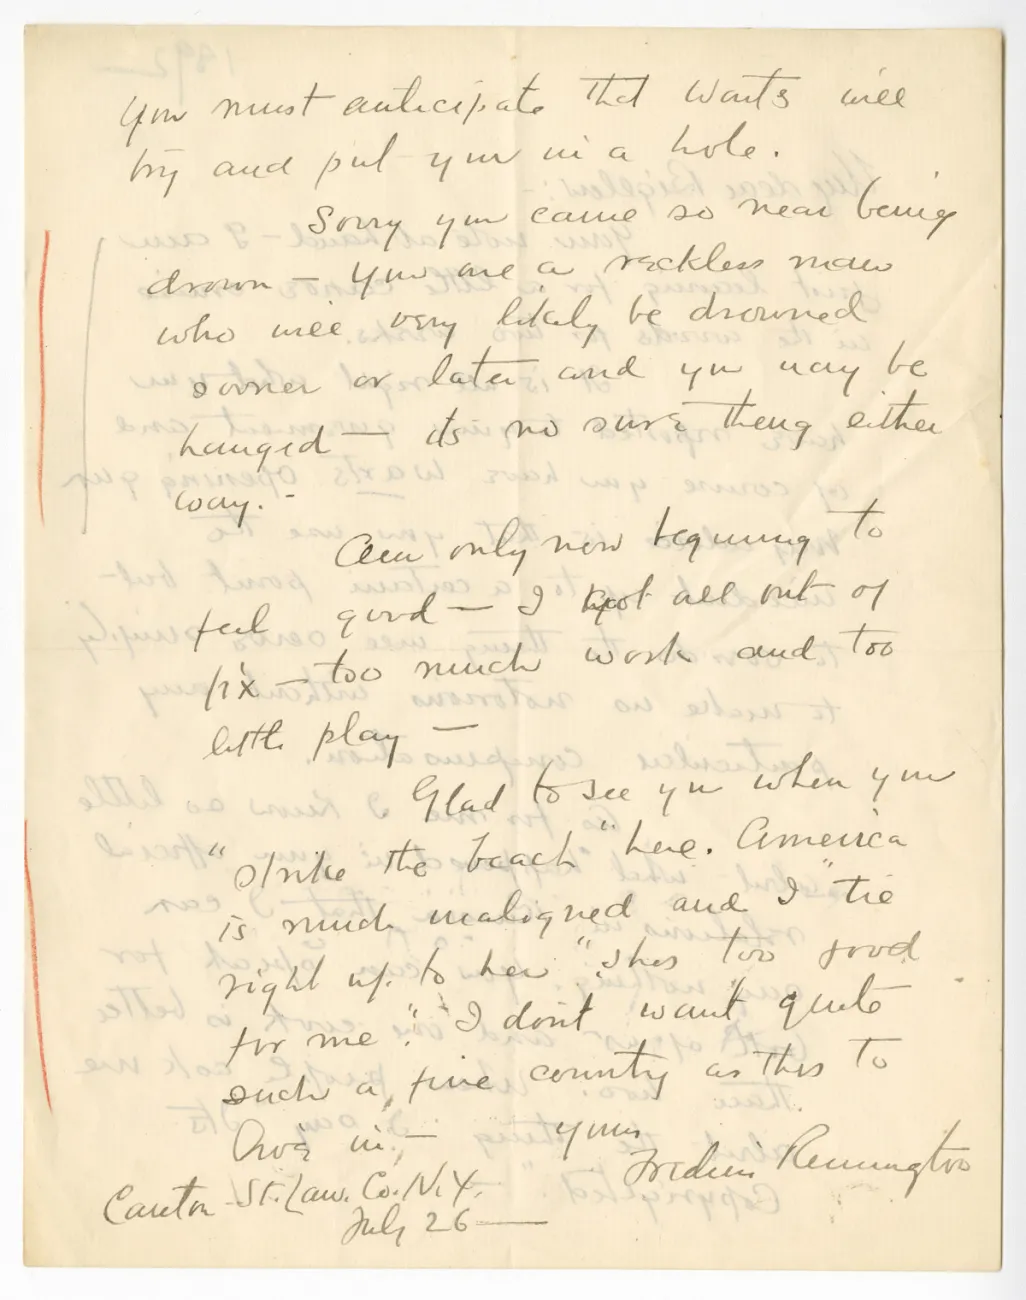 You must anticipate that Warts will
try and put you in a hole.
Sorry you came so near being
drown — you are a reckless man
who will very likely be drowned
sooner or later and you may be
hanged — its no sure thing either
way. -
Am only now begining to
feel good — I got all out of
fix — too much work and too
little play —
Glad to see you when you
"strike the beach" here. America
is much maligned and I "tie
right up to her" "shes too good
for me". I don't want quite
such a fine country as this to
live in, — yours
Frederic Remington
Canton St. Law. Co. N.Y.
July 26 —